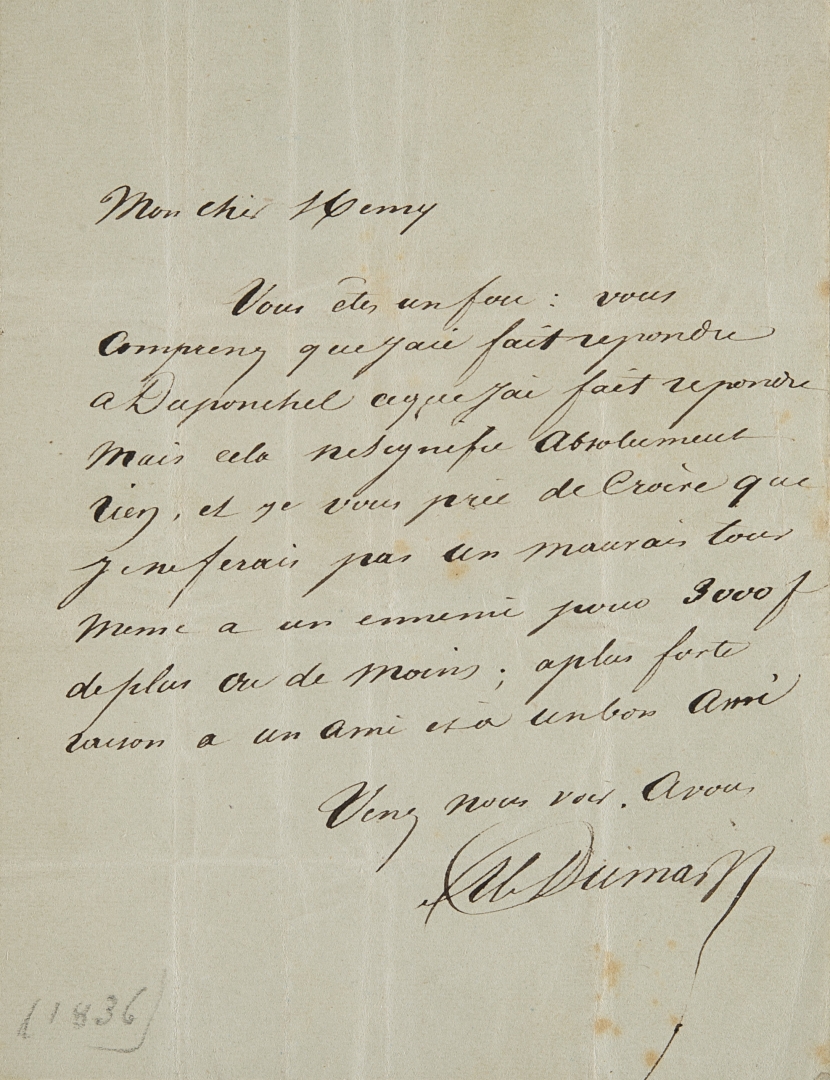 Mon cher Henry
Vous êtes un fou : vous
Comprenez que j'aie fait repondre
a Duponchel ce que j'ai fait repondre
Mais cela ne signifie Absolument
rien, et je vous prie de Croire que
je ne ferais pas un mauvais tour
meme a un ennemi pour 3000 f
de plus ou de moins ; a plus forte
raison a un ami et à un bon Ami
Venez nous voir. A vous
Al. Dumas
(1836)